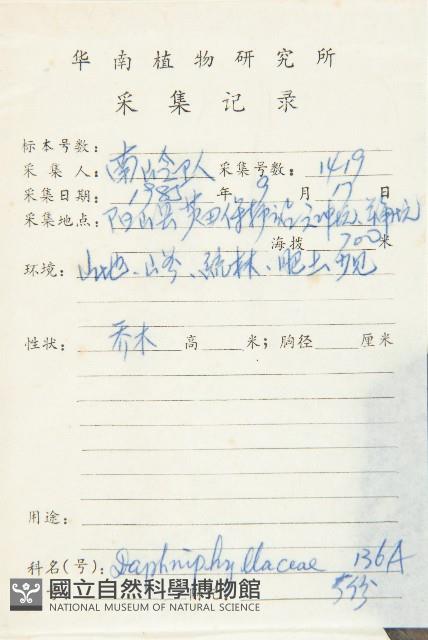 华南植物研究所
采集记录
标本号数：
采集人：南岭队 采集号数：1419
采集日期：1985年9月17日
采集地点：阳山县 保护
海拨 700米
环境：山地、山谷、疏林、肥土
性状：乔木 高 米；胸径 厘米
用途：
科名(号)：Daphniphyllaceae 136A
5份
國立自然科學博物館
NATIONAL MUSEUM OF NATURAL SCIENCE